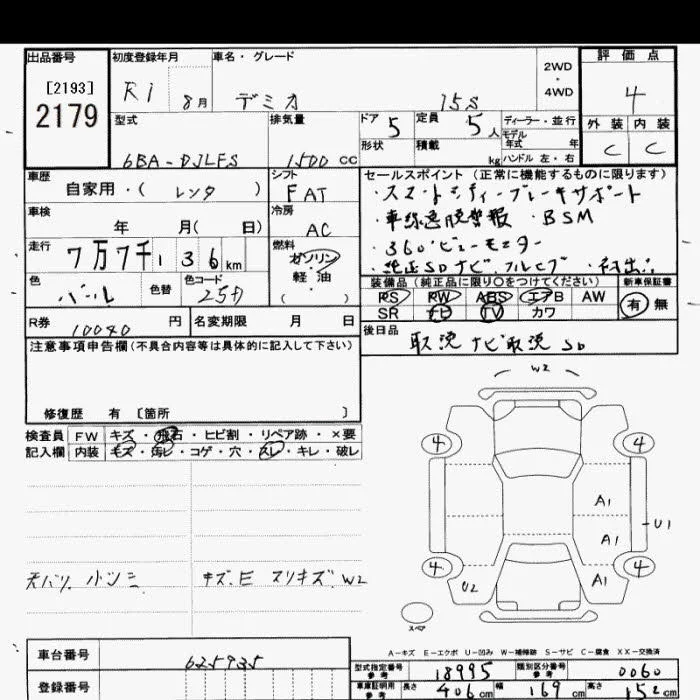 出品番号 初度登録年月 車名・グレード 評価点
[2193]
2179
R1 8月 デミオ 15S
2WD・4WD
4
型式 排気量 ドア 5 定員 5人 ディーラー・並行
外装 内装
形状 積載 kg モデル年式 年
ハンドル 左・右
C C
6BA-DJLFS 1500 CC
車歴 シフト セールスポイント(正常に機能するものに限ります)
自家用・( レンタ ) FAT
・スマートシティーブレーキサポート
車検 冷房
・車線逸脱警報 ・BSM
年 月( 日) AC
・360°ビューモニター
走行 7万7千136km 燃料
ガソリン・軽油
( )
・純正SDナビ フルセグ
色 色替 色コード
パール 25D
装備品(純正品に限り○をつけてください) 新車保証書
PS PW ABS エアB AW 有 無
SR ナビ TV カワ
R券 10040 円 名変期限 月 日
後日品 取説 ナビ取説 SD
注意事項申告欄(不具合内容等は具体的に記入して下さい)
修復歴 有 [箇所 ]
W2
検査員記入欄 FW キズ・飛石・ヒビ割・リペア跡・×要
内装 キズ・汚レ・コゲ・穴・スレ・キレ・破レ
4 4
A1
U1
A1
4 4
U2 A1
キズ.E スリキズ.W2
スペア
A-キズ E-エクボ U-凹み W-補修跡 S-サビ C-腐食 XX-交換済
車台番号 625935
型式指定番号 参考 18995 類別区分番号 参考 0060
登録番号
車庫証明用 参考 長さ 406cm 幅 169cm 高さ 152cm